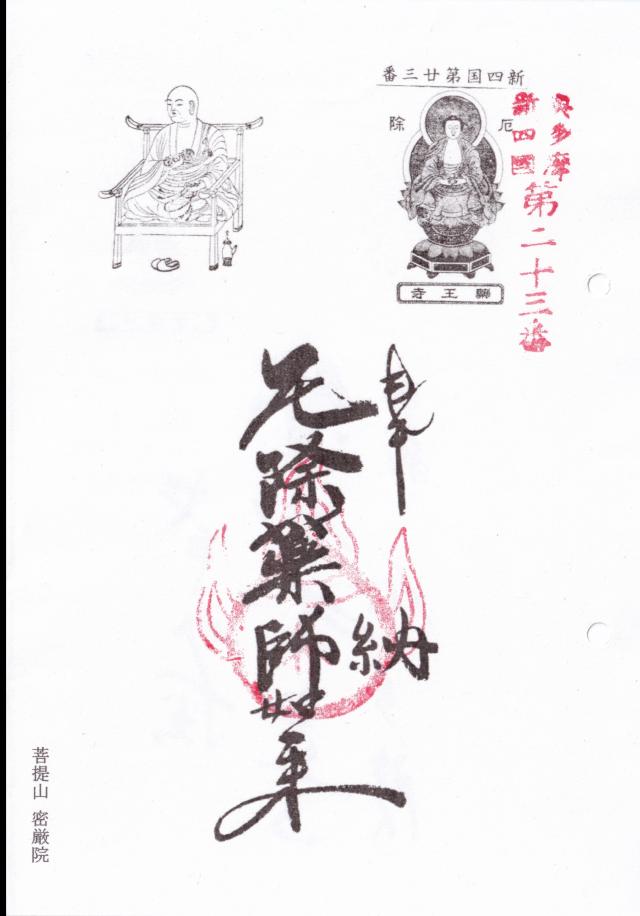 新四国第廿三番
厄除
王寺
奥多摩
新四國
第二十三番
奉納
厄除薬師如来
菩提山 密厳院